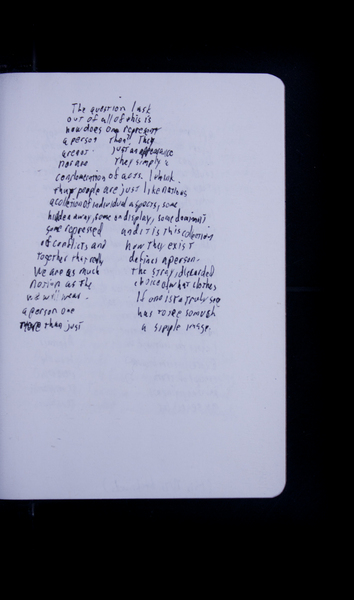 The question I ask
out of all of this is
how does one represent
a person then? They
are not just an appearance
nor are they simply a
conglomeration of acts. I think
that people are just like nations
a collection of individual aspects, some
hidden away, some on display, some dominant
some repressed and it is this collection
of conflicts and how they exist
together that really defines a person.
We are as much the stray, discarded
notion as the choice of what clothes
we will wear. If one is to truly see
a person one has to see so much
more than just a simple image.